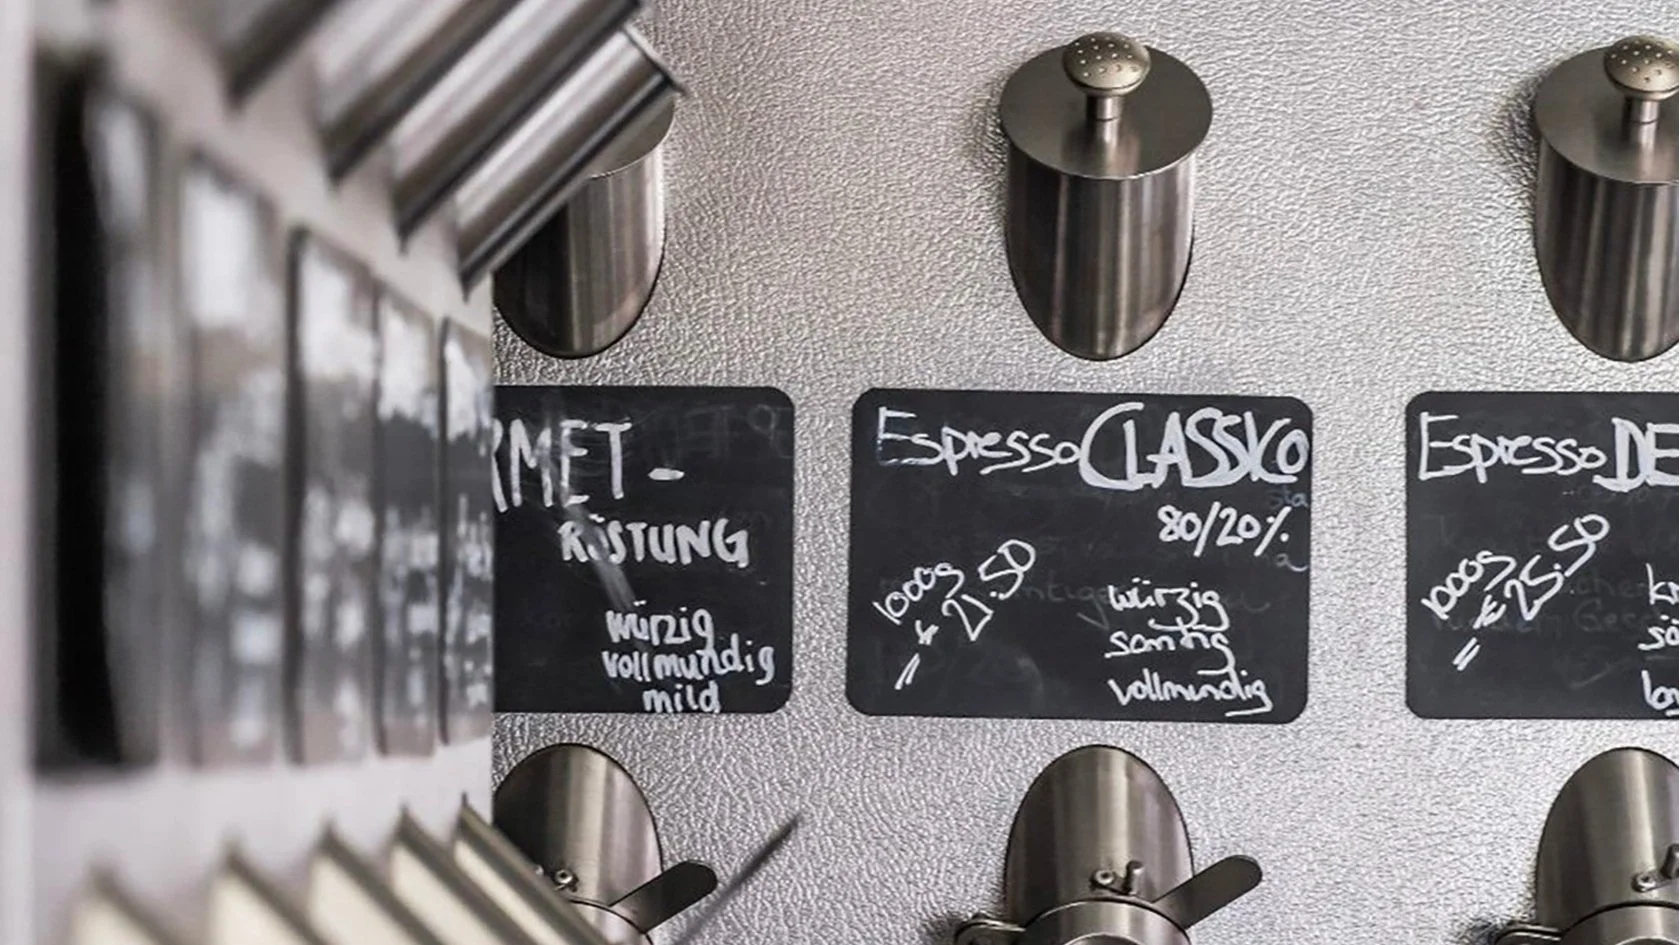 RMET-
RÖSTUNG
würzig
vollmundig
mild
Espresso CLASSICO
80/20%
1000g
€ 21.50
würzig
samtig
vollmundig
Espresso DE
1000g
€ 25.50